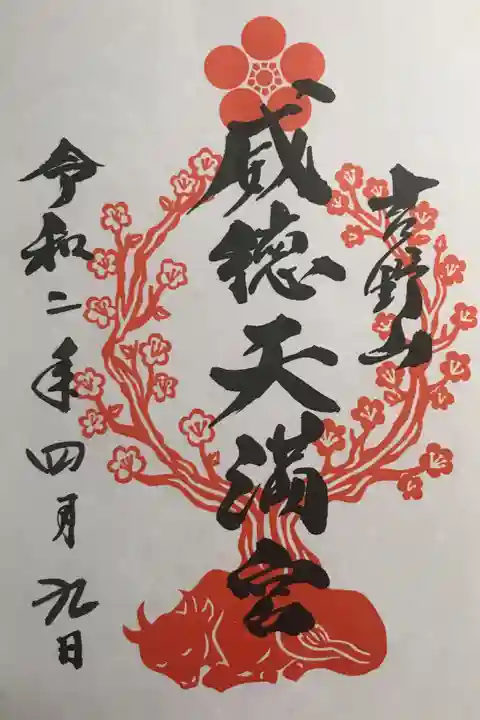 吉野山
威徳天満宮
令和二年四月九日